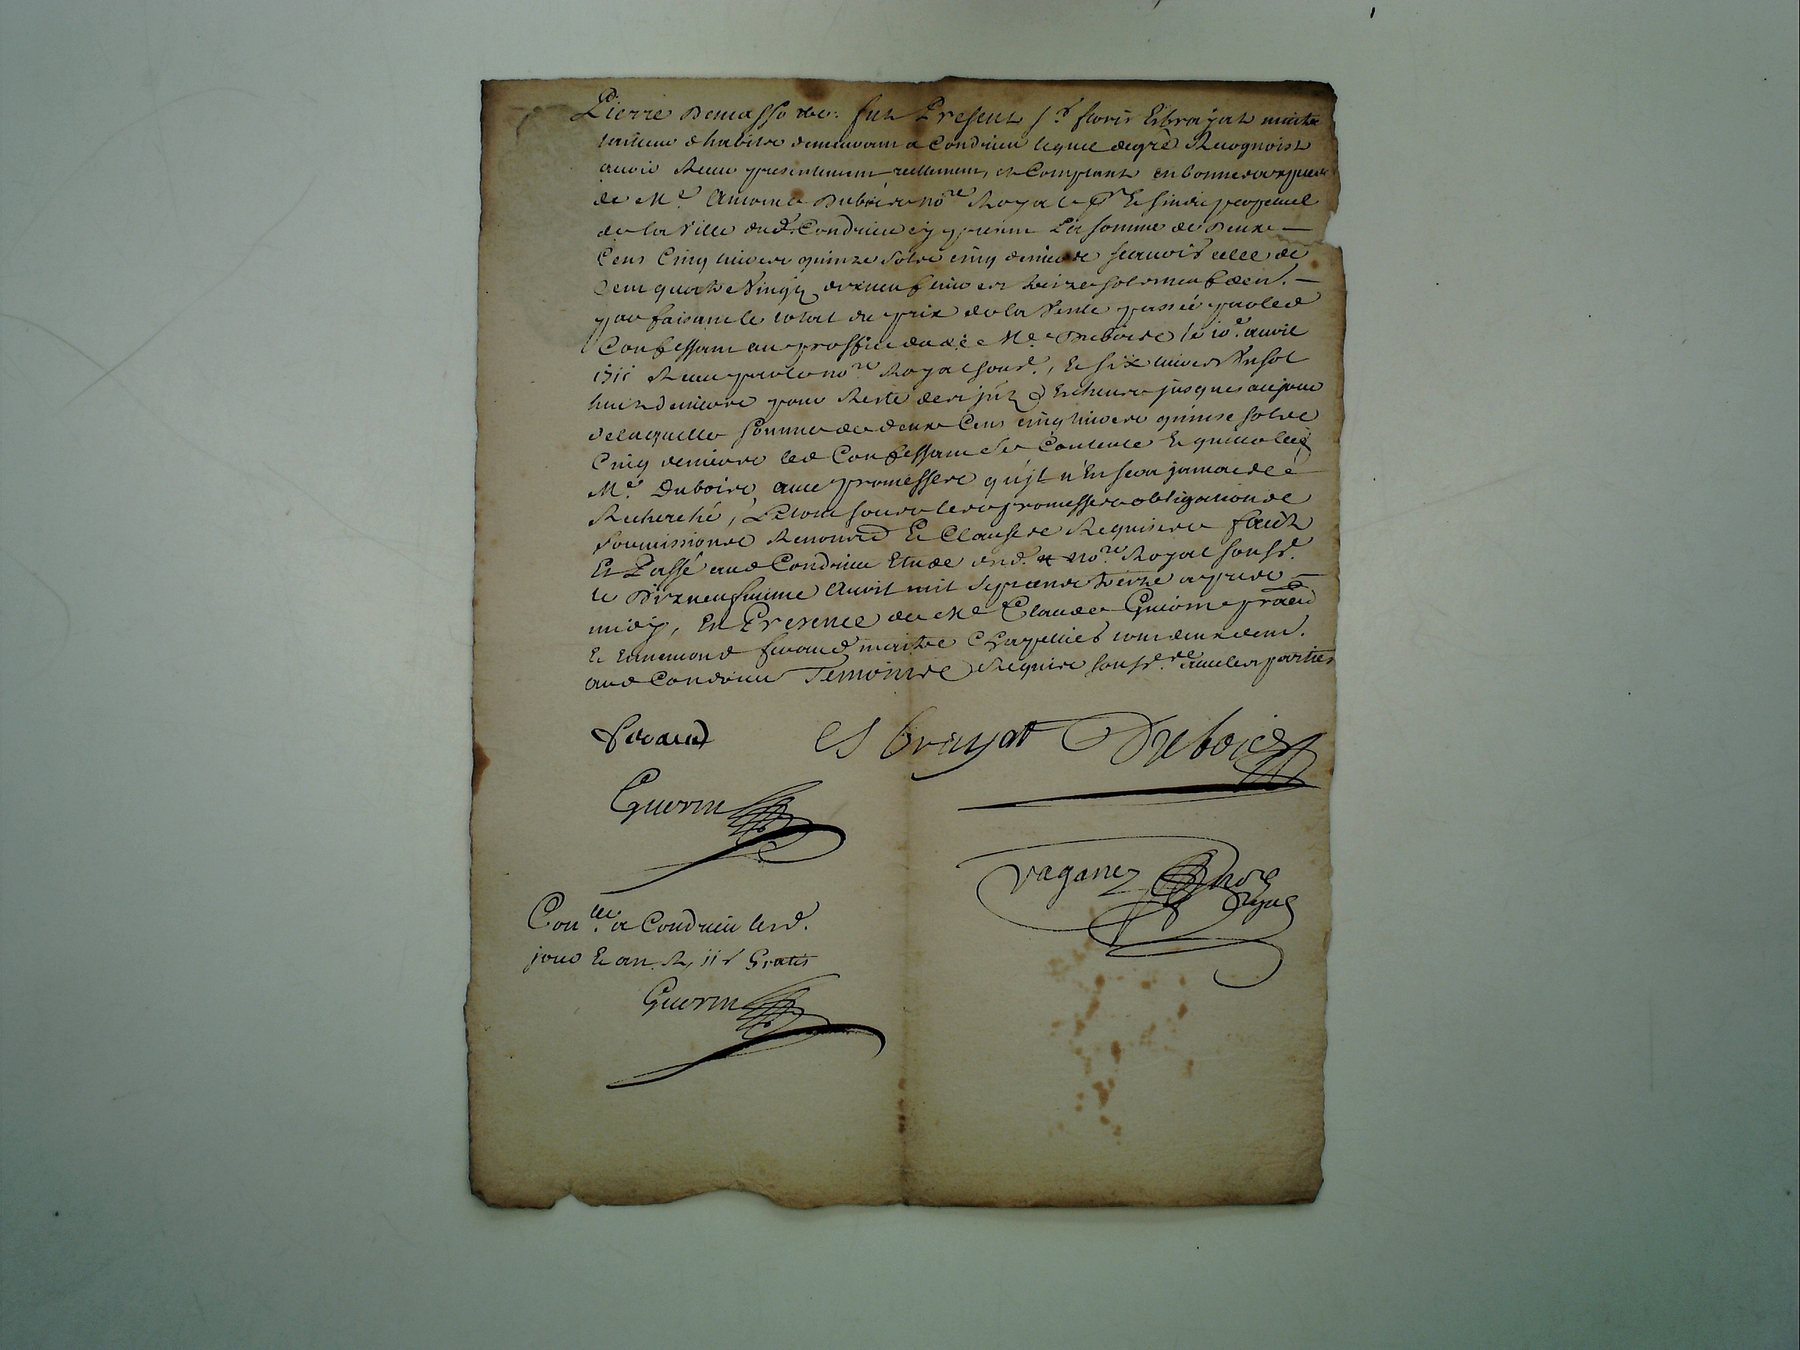 Pierre Demasso &c. fut Present sr. floris Esbrayat maitre
tailleur d'habits demeurant a Condrieu lequel de gré Recognoist
avoir Receu presentement reellement et Comptant en bonnes especes
de Me. Antoine Duboisc nore Royal & pr. Et sindic perpetuel
de la Ville dud. Condrieu cy present La somme de Deux
Cens Cinq livres quinze sols cinq deniers scavoir celle de
Cent quatre Vingt dixneuf livres treize sols neuf den.
par faisant le total du prix de la Vente passée par led
Confessant au proffit dud. Me. Duboisc le 10e. avril
1711 Receu par le nore Royal sousd., Et six livres Un sol
huit deniers pour Reste des jnt Escheus jusques au jour
de laquelle somme de deux Cens cinq livres quinse sols
Cinq deniers led Confessant se Contente Et quitte led
Me. Duboisc, avec promesses qu'jl n'En sera jamais
Recherché, Le tout sous les promesses obligations
soumissions Renond Et Clauses Requises faict
Et Passé aud Condrieu Etude dud. nore Royal soussd.
le Dixneufvieme Avril mil sept cens treize apres
midy, En Presence de Me Claude Guerin prat
Et Ennemond feraud maitre Chappellier tous deux dem.
aud Condrieu Temoins Requis soussd. avec les parties
feraud Esbrayat Duboisc
Guerin
Vaganez nore Royal
Conlé. a Condrieu lesd.
jour Et an. R. 11 s Gratis
Guerin